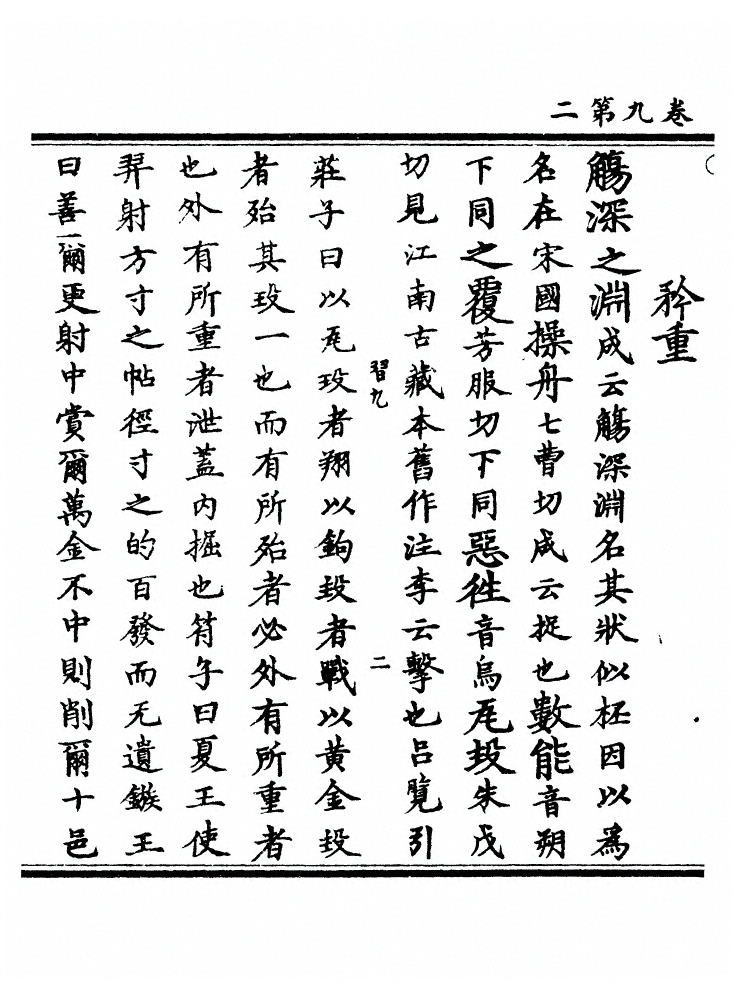 二第九卷
矜重
觴深之淵成云觴深淵名其狀似柸因以爲
名在宋國操舟七曹切成云捉也數能音朔
下同之覆芳服切下同惡徃音烏𤬦㱾朱戍
切見江南古藏本舊作注李云擊也呂覽引
習九
二
莊子曰以𤬦㱾者翔以鉤㱾者戰以黃金㱾
者殆其㱾一也而有所殆者必外有所重者
也外有所重者泄蓋内掘也符子曰夏王使
羿射方寸之帖徑寸之的百發而无遺鏃王
曰善爾更射中賞爾萬金不中則削爾十邑